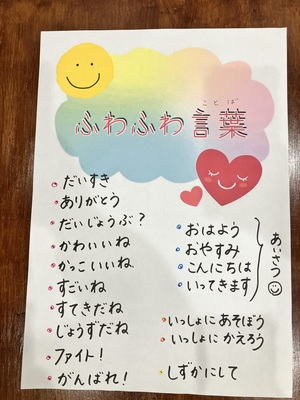 ことば
ふわふわ言葉
だいすき
ありがとう
だいじょうぶ？
かわいいね
かっこいいね
すごいね
すてきだね
じょうずだね
ファイト！
がんばれ！
おはよう
おやすみ
こんにちは
いってきます
あいさつ
いっしょに あそぼう
いっしょに かえろう
しずかにして